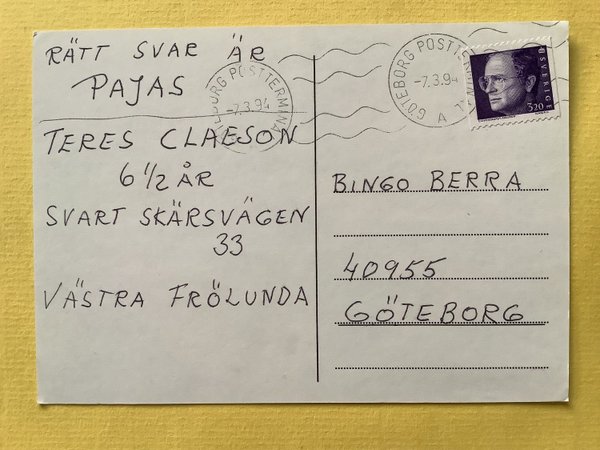 RÄTT SVAR ÄR
PAJAS
TERES CLAESON
6 1/2 ÅR
SVART SKÄRSVÄGEN
33
VÄSTRA FRÖLUNDA
GÖTEBORG POSTTERMINAL
-7.3.94
GÖTEBORG POSTTERMINAL
-7.3.94
A
SVERIGE
3.20
BINGO BERRA
40955
GÖTEBORG